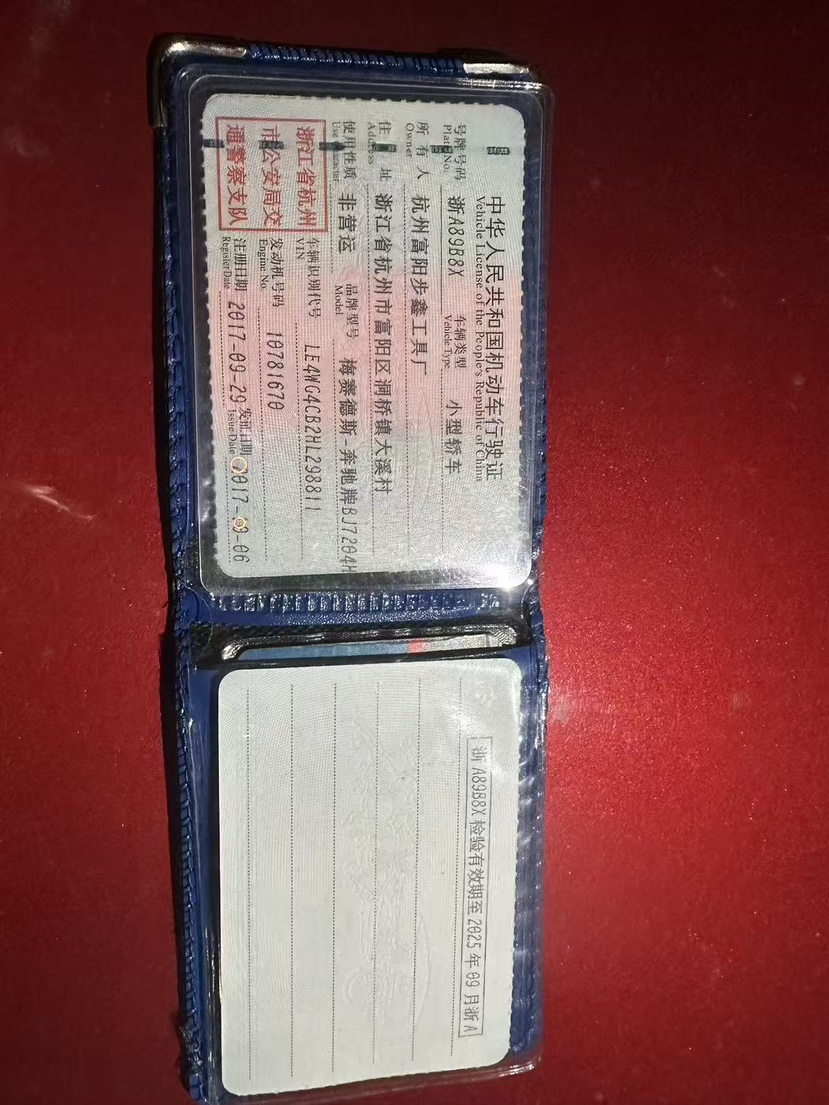 中华人民共和国机动车行驶证
Vehicle License of the People's Republic of China
号牌号码 浙A89B8X 车辆类型 小型轿车
Plate No. Vehicle Type
所有人 杭州富阳步鑫工具厂
Owner
住址 浙江省杭州市富阳区洞桥镇大溪村
Address
使用性质 非营运 品牌型号 梅赛德斯-奔驰牌BJ7204H
Use Character Model
浙江省杭州
市公安局交
通警察支队
车辆识别代号 LE4WG4CB2HL298811
VIN
发动机号码 10781670
Engine No.
注册日期 2017-09-29 发证日期
Register Date Issue Date
浙A89B8X检验有效期至2025年09月浙A